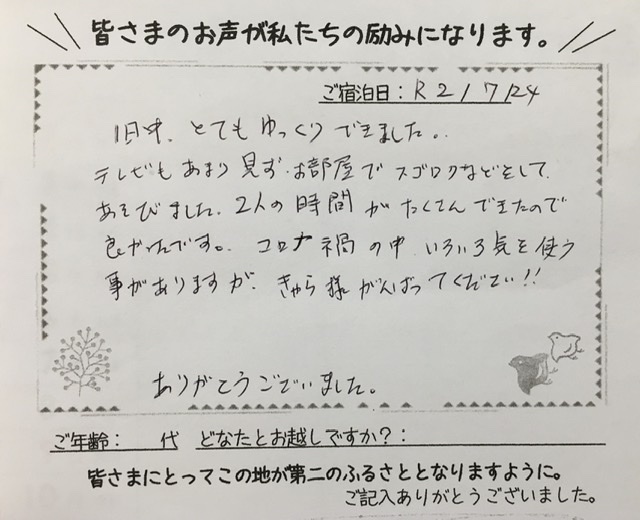 皆さまのお声が私たちの励みになります。
ご宿泊日：R2/7/24
1日中、とてもゆっくりできました。
テレビもあまり見ず、お部屋でスゴロクなどをして
あそびました。2人の時間がたくさんできたので
良かったです。コロナ禍の中、いろいろ気を使う
事がありますが、きゅら様がんばってください!!
ありがとうございました。
ご年齢： 代 どなたとお越しですか？：
皆さまにとってこの地が第二のふるさととなりますように。
ご記入ありがとうございました。